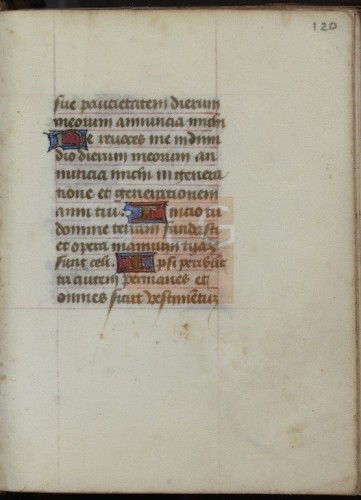 120
sue paucietatem dierum
meorum annuncia michi
Ne reuoces me in dimi
dio dierum meorum an
nuncia michi in genera
tione et generationem
anni tui. Inicio tu
domine terram fundasti
et opera manuum tuarū
sunt celi. Ipsi peribūt
tu autem permanes et
omnes sicut vestimētum